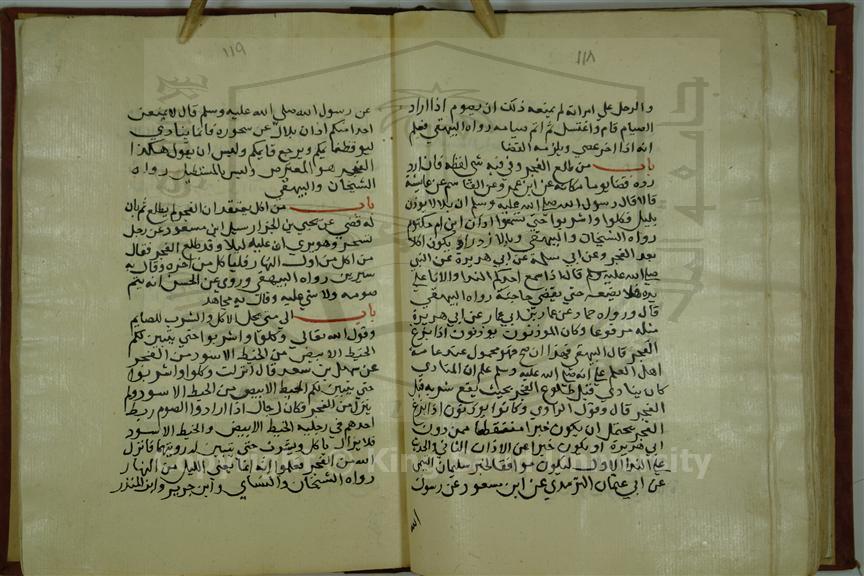 ١١٨
والرجل على امراته لم يمنعه ذلك ان يصوم اذا اراد
الصيام قام واغتسل ثم اتم صيامه رواه البيهقي فعلم
انه اذا اخر عصى ويلزمه القضا
باب من طلع الفجر وفي فيه شي لفظه فان ازد
رده قضا يوما مكانه عن ابن عمر وعن القاسم عن عايشة
قالا قال رسول الله صلى الله عليه وسلم ان بلالا يوذن
بليل فكلوا واشربوا حتى تسمعوا اذان ابن ام مكتوم
رواه الشيخان والبيهقي وبالازدراد يكون اكلا
بعد الفجر وعن ابي سلمة عن ابي هريرة عن النبي
صلى الله عليه وسلم قال اذا سمع احدكم الندا والانا على
يده فلا يضعه حتى يقضي حاجته رواه البيهقي
قال ورواه حماد عن عمار بن ابي عمار عن ابي هريرة
مثله مرفوعا وكان الموذنون يوذنون اذا بزغ
الفجر قال البيهقي فهذا ان صح فهو محمول عند عامة
اهل العلم على انه صلى الله عليه وسلم علم ان المنادي
كان ينادي قبل طلوع الفجر بحيث يقع شربه قبل
الفجر قال وقول الراوي وكانوا يوذنون اذا بزغ
الفجر يحتمل ان يكون خبرا منقطعا ممن دون
ابي هريرة او يكون خبرا عن الاذان الثاني
على الندا الاول ليكون موافقا لخبر سليمان التيمي
عن ابي عثمان عن ابن مسعود عن رسول
الله
١١٩
عن رسول الله صلى الله عليه وسلم قال لا يمنعن
احدا منكم اذان بلال عن سحوره فانما ينادي
ليوقظ نايمكم ويرجع قايمكم وليس ان يقول هكذا
الفجر هو المعترض وليس بالمستطيل رواه
الشيخان والبيهقي
باب من اكل يعتقد ان الفجر لم يطلع ثم بان
له قضى عن يحيى بن الجزار سيل ابن مسعود عن رجل
تسحر وهو يرى ان عليه ليلا وقد طلع الفجر فقال
من اكل من اول النهار فلياكل من اخره وقال به
سيرين رواه البيهقي وروى عن الحسن انه يتم
صومه ولا شي عليه وقال به مجاهد
باب الى متى يحل الاكل والشرب للصايم
وقول الله تعالى وكلوا واشربوا حتى يتبين لكم
الخيط الابيض من الخيط الاسود من الفجر
عن سهل بن سعد قال انزلت وكلوا واشربوا
حتى يتبين لكم الخيط الابيض من الخيط الاسود ولم
ينزل من الفجر فكان رجال اذا ارادوا الصوم ربط
احدهم في رجليه الخيط الابيض والخيط الاسود
فلا يزال ياكل ويشرب حتى يتبين له رويتهما فانزل
الله من الفجر فعلموا انه انما يعني الليل من النهار
رواه الشيخان والنساي وابن جرير وابن المنذر
Copyright © King University